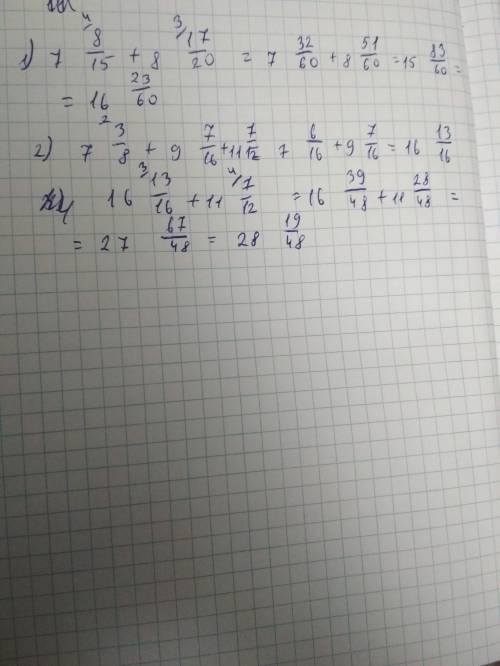 1) 7 8/15 + 8 17/20 = 7 32/60 + 8 51/60 = 15 83/60 =
= 16 23/60
2) 7 3/8 + 9 7/16 + 11 7/12 7 6/16 + 9 7/16 = 16 13/16
16 13/16 + 11 7/12 = 16 39/48 + 11 28/48 =
= 27 67/48 = 28 19/48